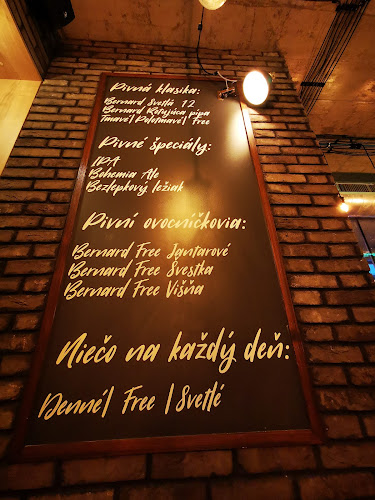 Pivná klasika:
Bernard Svetlá 12
Bernard Rotujúca pipa
Tmavé| Polotmavé| Free
Pivné špeciály:
IPA
Bohemia Ale
Bezlepkový ležiak
Pivní ovocníčkovia:
Bernard Free Jantarové
Bernard Free Švestka
Bernard Free Višňa
Niečo na každý deň:
Denné| Free | Svetlé